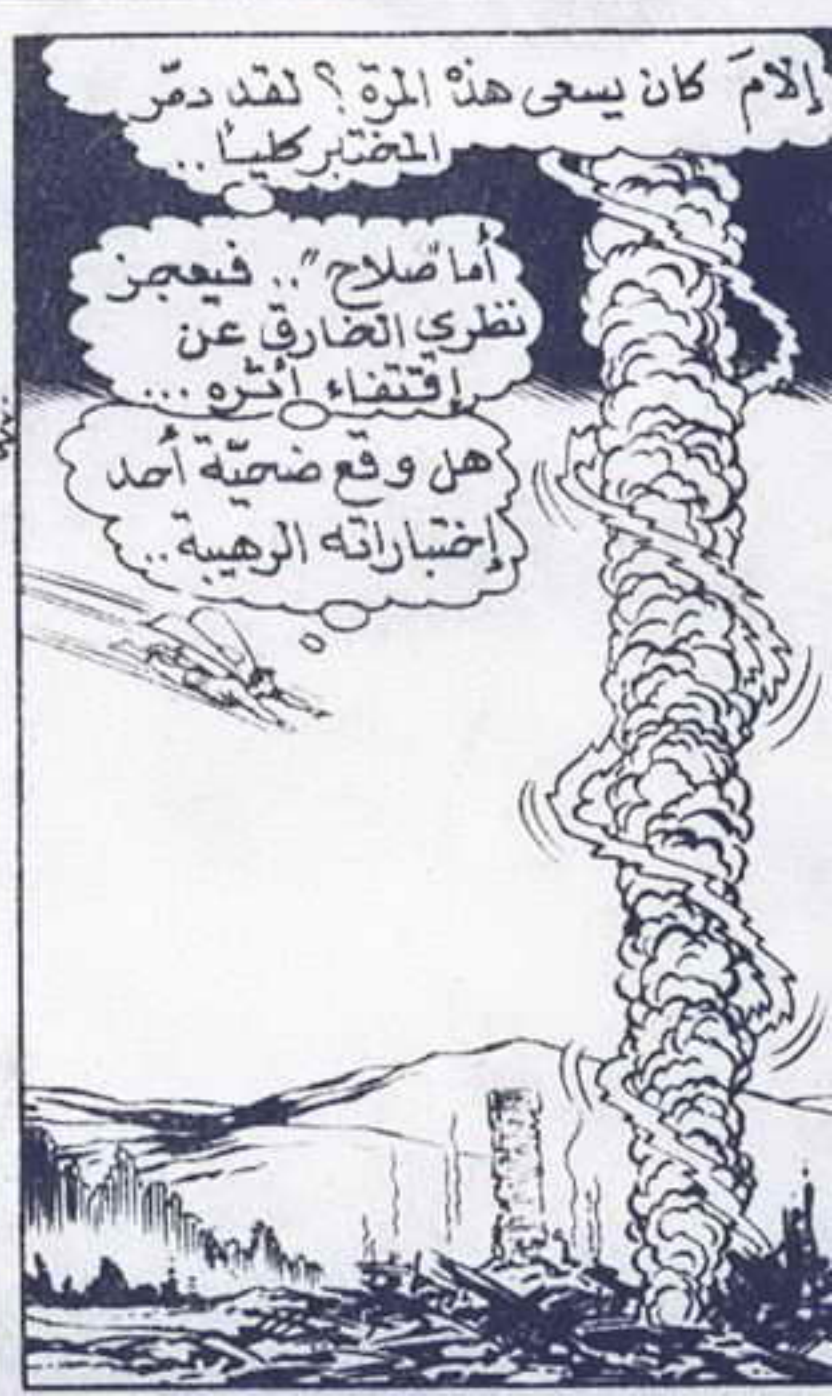 إلامَ كان يسعى هذه المرّة؟ لقد دمّر
المختبر كلياً..
أما "صلاح".. فيعجز
نظري الخارق عن
إقتفاء أثره...
هل وقع ضحيّة أحد
إختباراته الرهيبة..